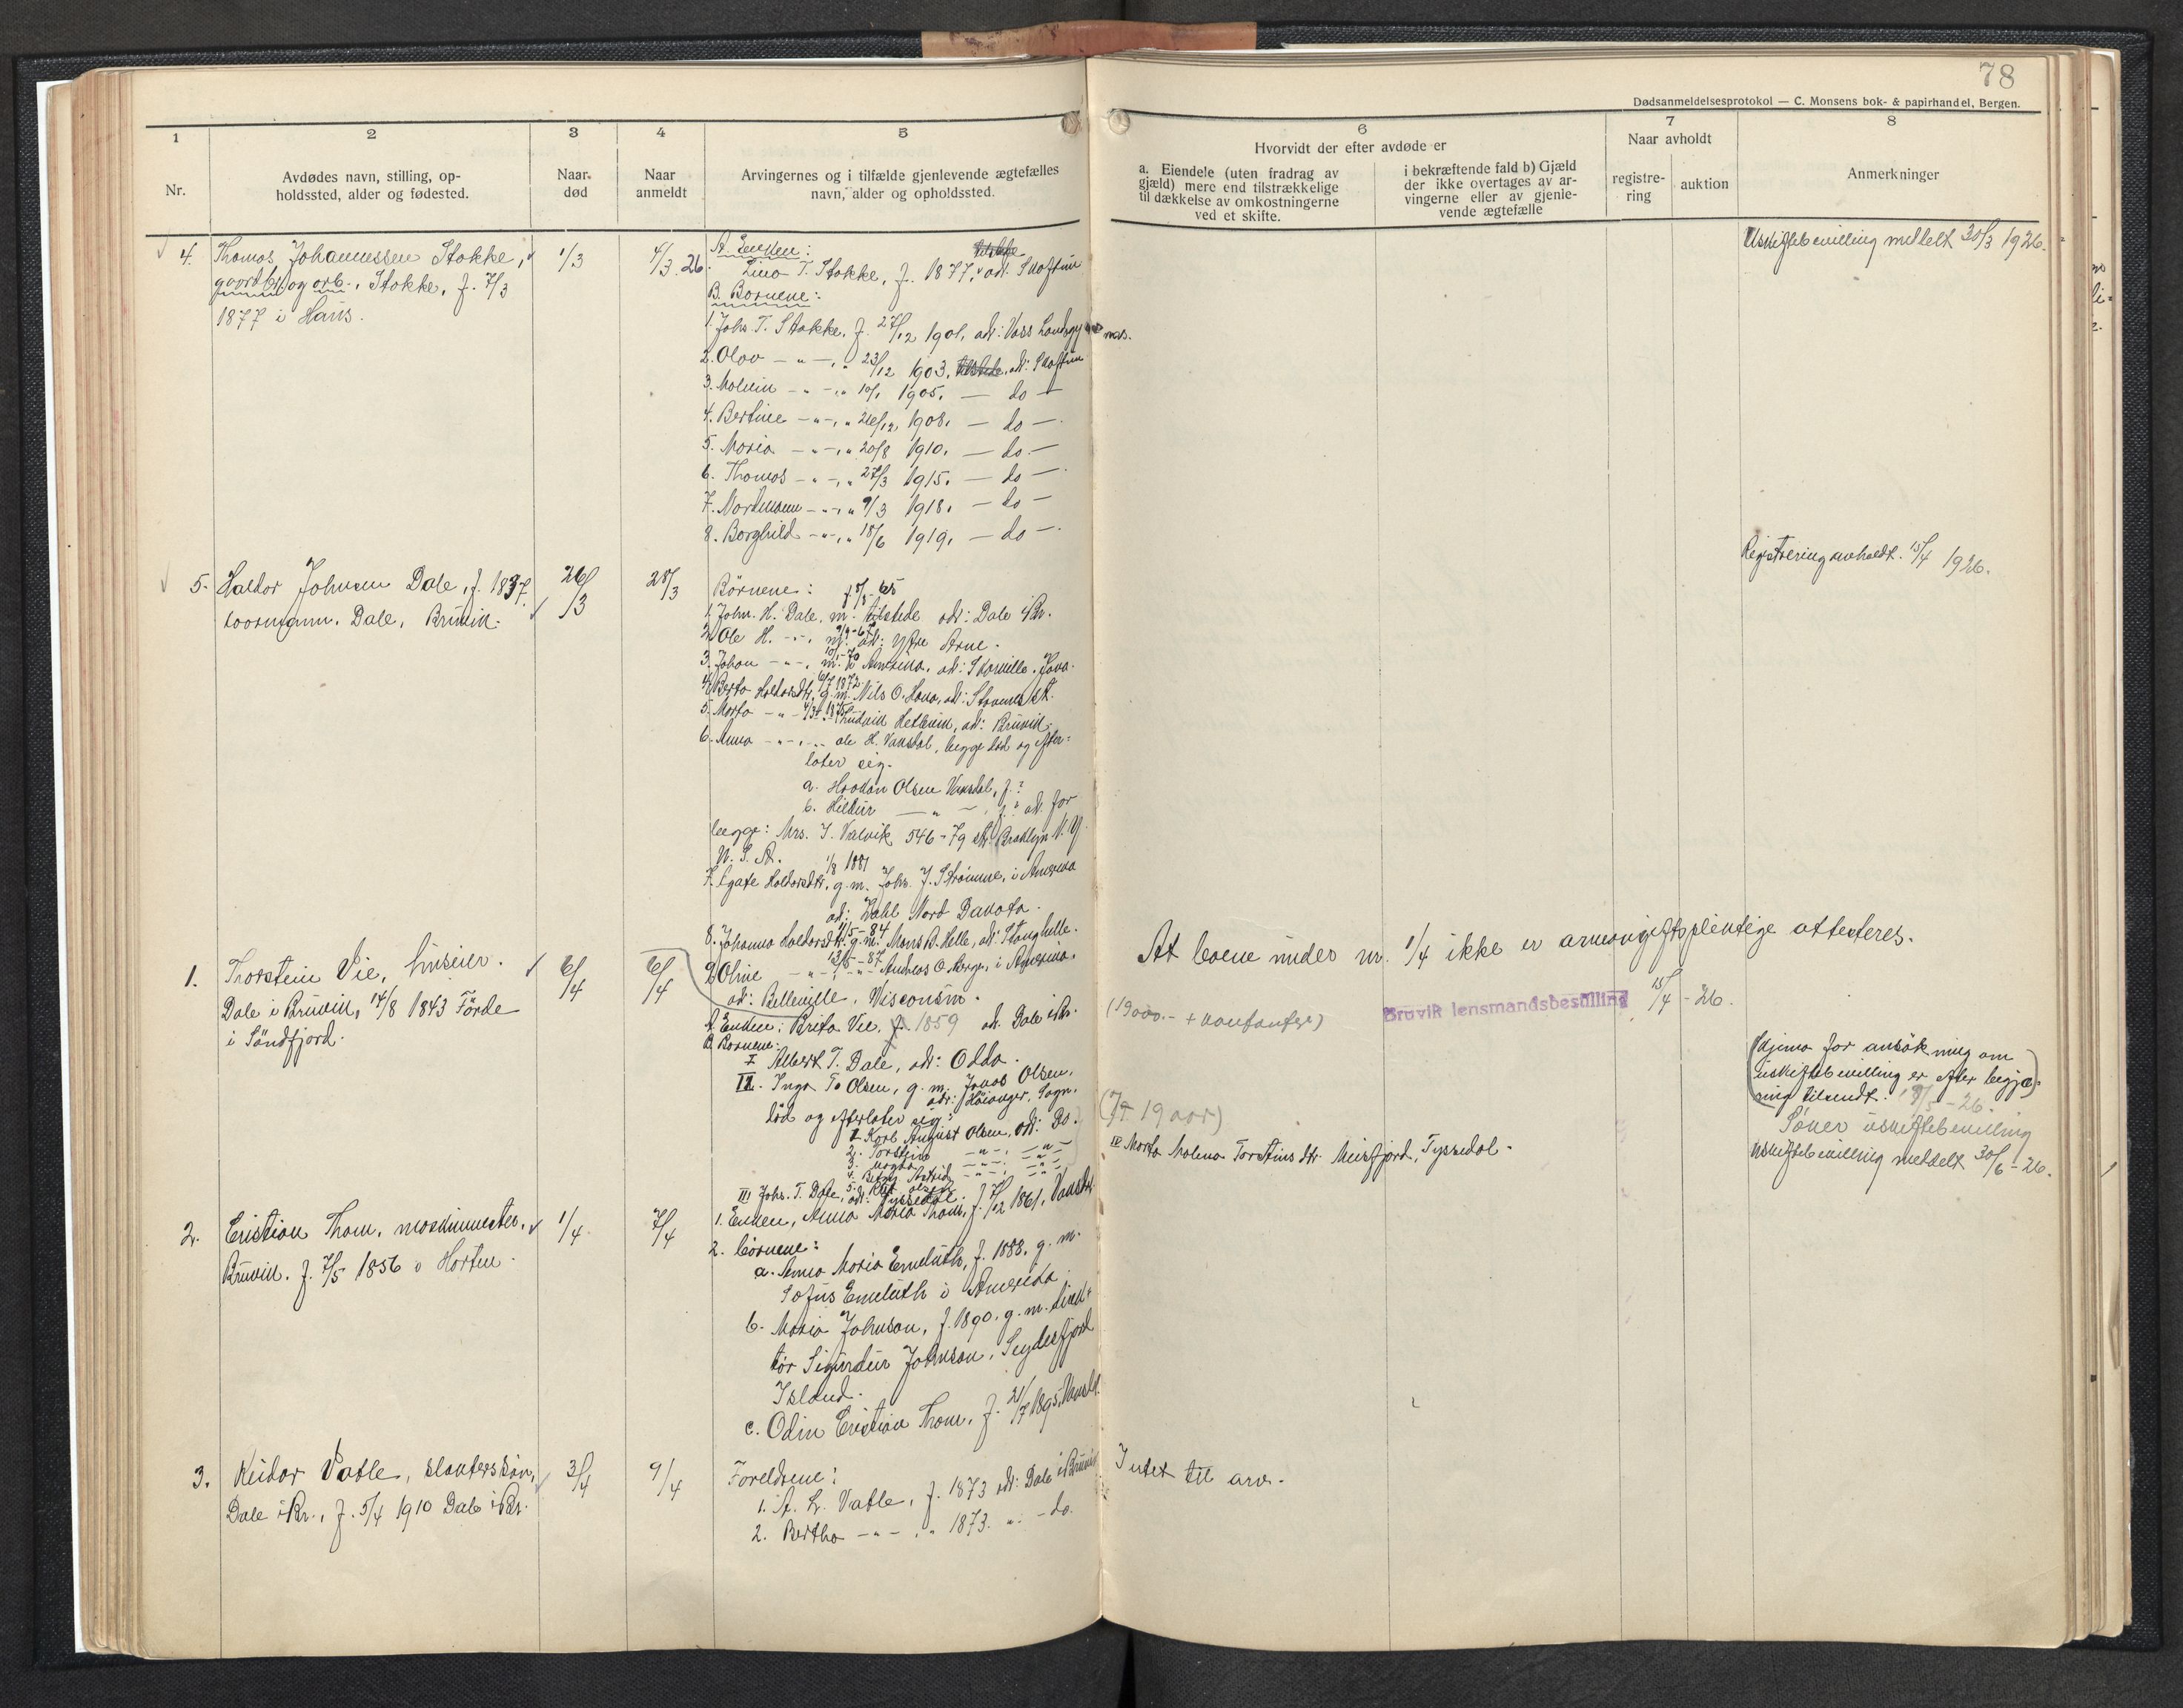 78
Dødsanmeldelsesprotokol — C. Monsens bok- & papirhandel, Bergen.
1
2
3
4
5
6
7
8
Nr.
Avdødes navn, stilling, op-
holdssted, alder og fødested.
Naar
død
Naar
anmeldt
Arvingernes og i tilfælde gjenlevende ægtefælles
navn, alder og opholdssted.
Hvorvidt der efter avdøde er
a. Eiendele (uten fradrag av
gjæld) mere end tilstrækkelige
til dækkelse av omkostningerne
ved et skifte.
i bekræftende fald b) Gjæld
der ikke overtages av ar-
vingerne eller av gjenle-
vende ægtefælle
Naar avholdt
registre-
ring
auktion
Anmerkninger
4. Thomas Johannessen Stokke,
gaardbr. og arb., Stokke, f. 7/3
1877 i Haus.
1/3
4/3 26.
A. Enken:
T. Stokke, f. 1877, adr:
B. Børnene:
1. Johs T. Stokke, f. 27/12 1901, adr: Voss Landsgymnas.
2. Olav — " —, " 23/12 1903, adr:
3. — " —, " 10/1 1905. — do —
4. Bertine — " —, " 26/12 1908. — do —
5. Maria — " —, " 20/8 1910. — do —
6. Thomas — " —, " 27/3 1915. — do —
7. Nordmann — " —, " 9/3 1918. — do —
8. Borghild — " —, " 18/6 1919. — do —
Uskiftebevilling meddelt 30/3 1926.
5. Haldor Johnsen Dale, f. 1837.
Dale, Bruvik.
26/3
28/3
Børnene:
1. John. H. Dale, m. tilstede adr: Dale i Br.
2. Ole H. — " —, m. adr: Ytre Arne.
3. Johan — " —, m. i Amerika, adr:
4. Berta Haldorsdtr, g. m. Nils O.
5. Marta — " — Hetlevik, adr: Bruvik.
6. Anna — " —, — " — Ole H. Vaksdal, begge død og efter-
later sig.
a. Haakon Olsen Vaksdal, f. ?
b. Hildur — " — , f. ? adr. for
begge: Mrs. J. Valvik 546 - 79 str. Brooklyn N. Y.
U. S. A.
1/8 1881
7. Agate Haldorsdtr, g. m. Johs. J. Strømme, i Amerika
adr: Dahl Nord Dakota.
8. Johanna Haldorsdtr. g. m. Mons B. Helle, adr: Stanghelle.
9. Oline — " —, — " — Andreas O. Berge, i Amerika.
adr: Belleville, Visconsin.
Registrering avholdt 15/4 1926.
1. Thorstein Vie, huseier.
Dale i Bruvik, 14/8 1843 Förde
i Söndfjord.
6/4
6/4
A. Enken: Brita Vie, f. 1859 adr. Dale i Br.
B. Børnene:
I Albert T. Dale, adr: Odda.
II. Inga T. Olsen, g. m. Jonas Olsen,
adr: Høianger, Sogn,
død og efterlater sig:
1. Karl August Olsen, adr: Do.
2. Torstein — " —
3. Magda — " —
4. Astrid — " —
5. Olsen
III Johs. T. Dale, adr: Tyssedal.
At boene under nr. 1/4 ikke er arveavgiftspliktige attesteres.
(19000.- + kontanter)
Bruvik lensmandsbestilling 15/4 - 26.
(Ja 19 000)
IV Marta Malena Torstinsdtr. Meisfjord, Tyssedal.
(Skjema for ansökning om
uskiftebevilling er efter begjæ-
ring tilsendt. 18/5 - 26.
Söker uskiftebevilling
Uskiftebevilling meddelt 30/6 - 26.
2. Cristian Thom, maskinmester,
Bruvik. f. 7/5 1856 i Horten.
1/4
7/4
1. Enken, Anna Maria Thom, f. 7/12 1861, Vaksdal
2. Børnene:
a. Anna Maria Emeluth, f. 1888, g. m.
Sofus Emeluth i Amerika
b. Maria Johnson, f. 1890, g. m. direk-
tør Sigurdur Johnson, Seydesfjord
Island.
c. Odin Cristian Thom, f. 21/7 1895, Vaksdal.
3. Reidar Vatle,
Dale i Br., f. 5/4 1910 Dale i Br.
3/4
9/4
Foreldrene:
1. A. L. Vatle, f. 1873 adr: Dale i Bruvik
2. Bertha — " —, " 1873. " — do.
Intet til arv.